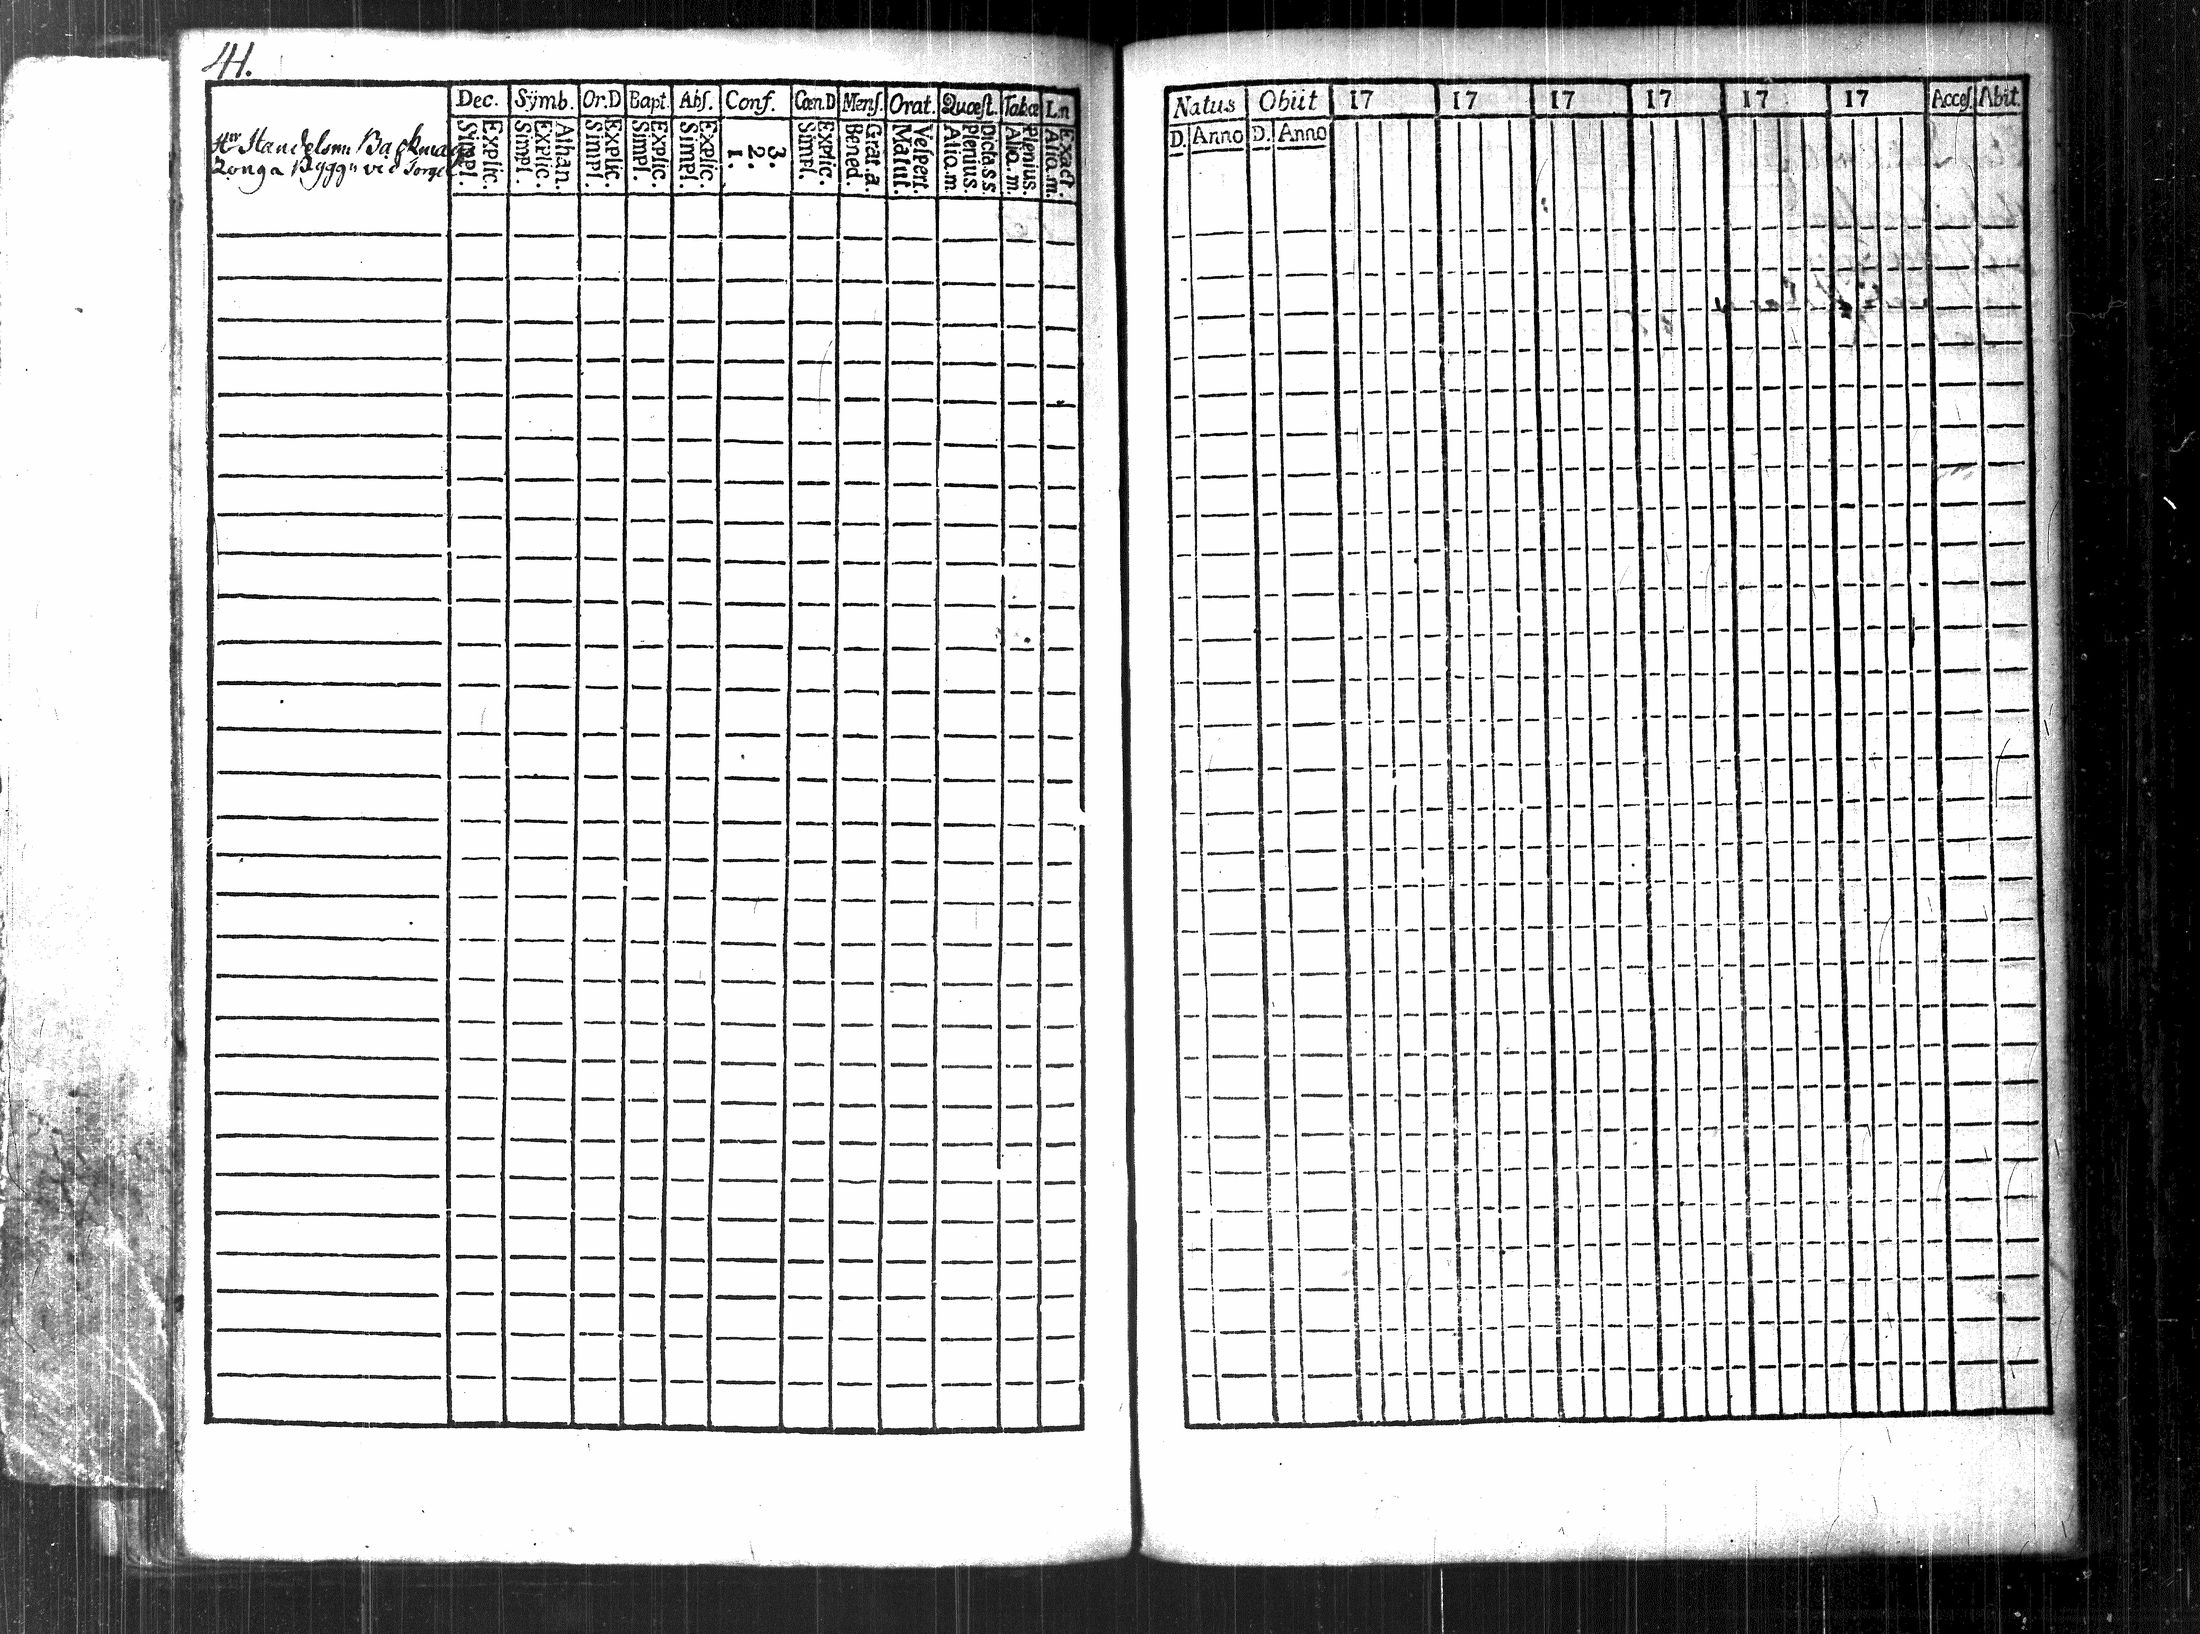 41.
Dec. Sÿmb. Or.D Bapt. Abs. Conf. Cœn.D Mens. Orat. Quœst. Tabœ L.n
Explic. Simpl. Athan. Explic. Simpl. Explic. Simpl. Explic. Simpl. Explic. Simpl. 3. 2. 1. Explic. Simpl. Grat.a. Bened. Vespert. Matut. Dicta s s. plenius. Alio.m. Plenius. Alio.m. Exact. Alio.m.
Hrr Handelsmn Backmans
Tonga Byggn vid Torget
Natus Obiit 17 17 17 17 17 17 Acces. Abit.
D. Anno D. Anno